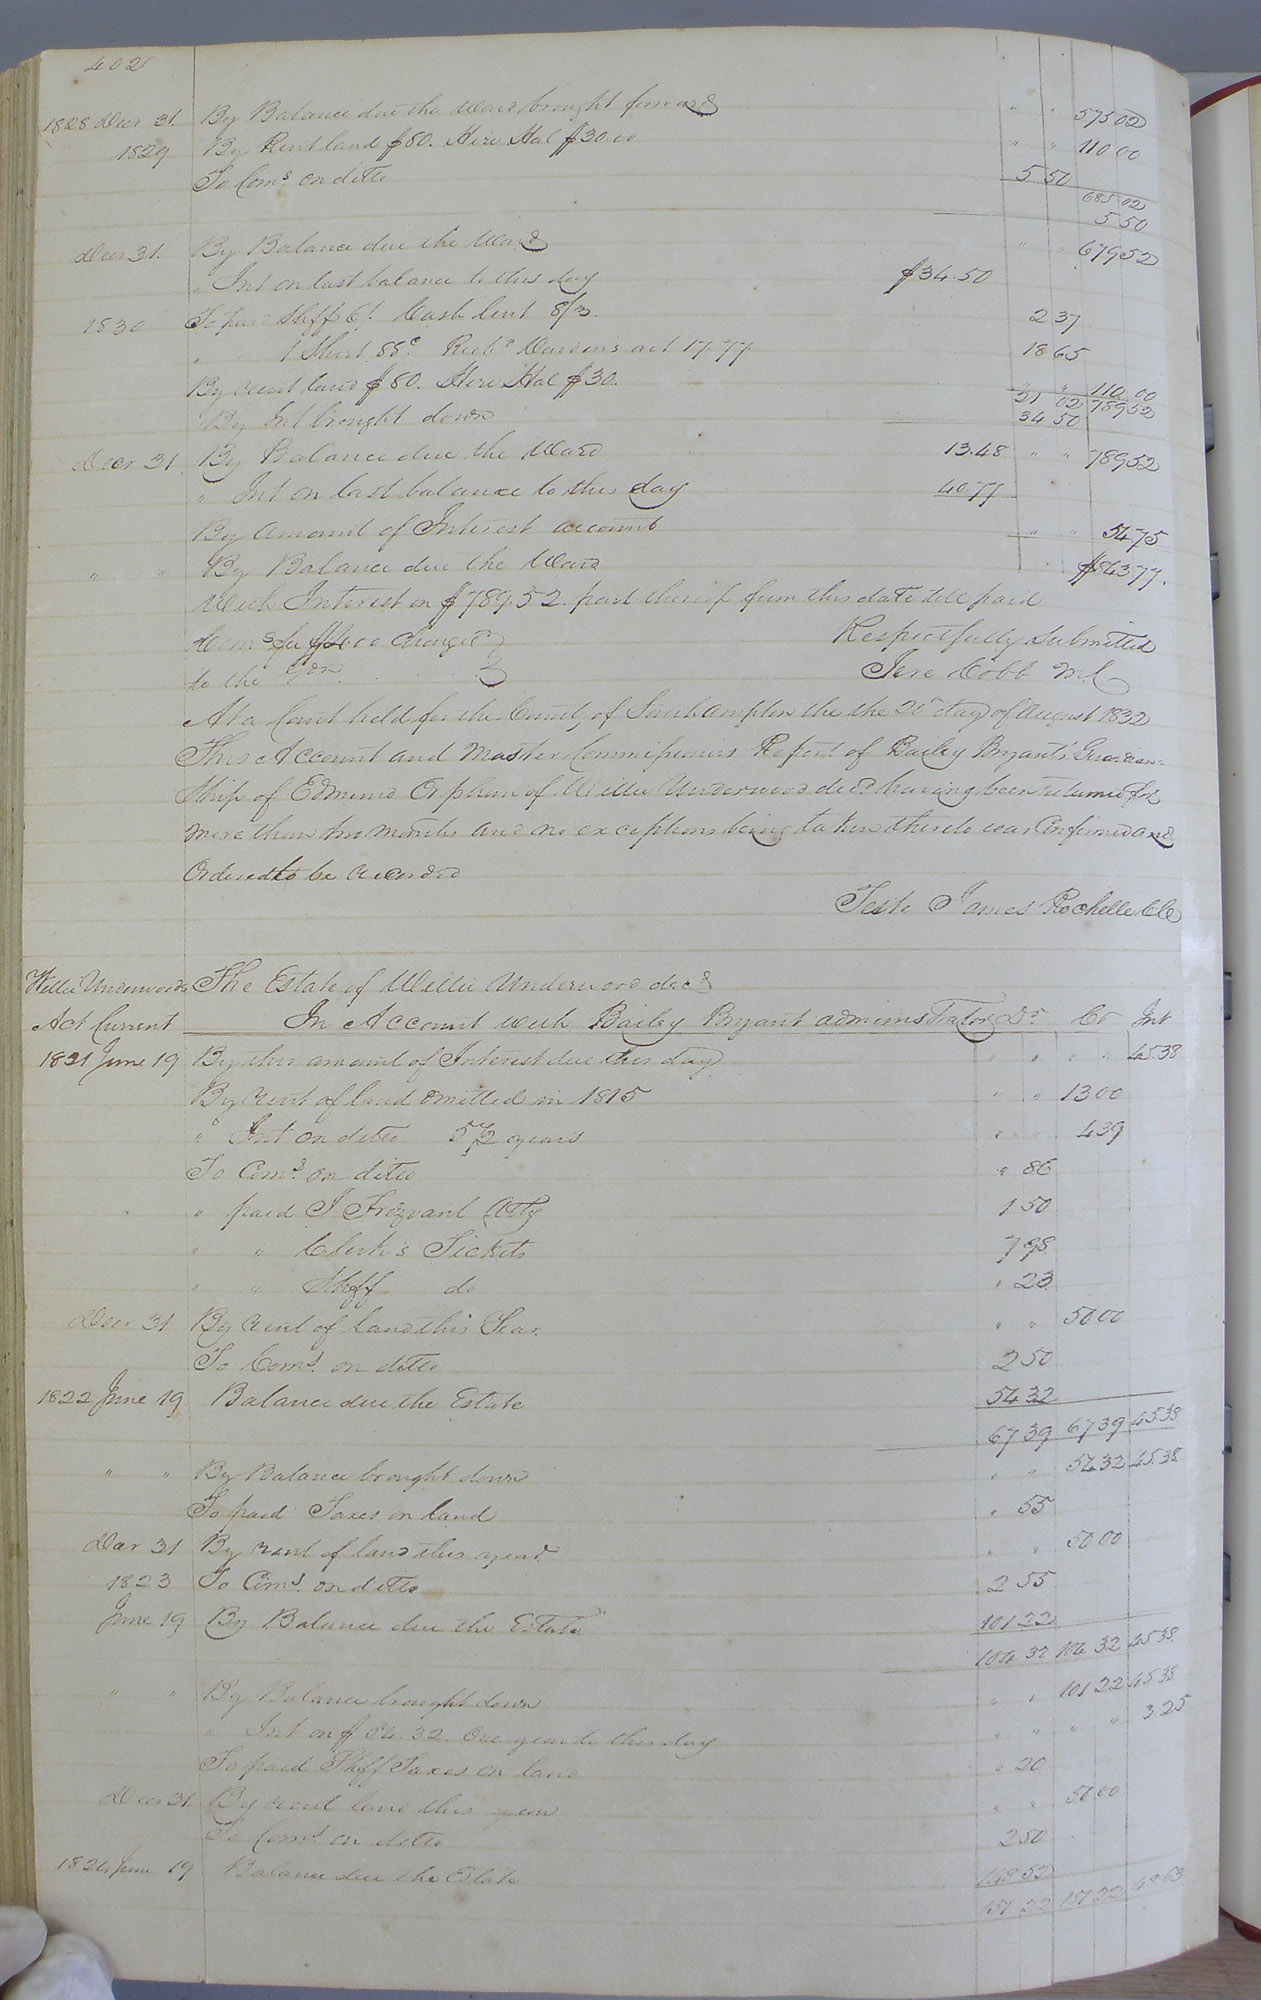 402
1828 Decr 31. By Balance due the Ward brought forward " " 575 02
1829 By Rent land $80. Hire Hal $30.00 " " 110 00
To Coms on ditto 5 50
685 02
5 50
Decr 31. By Balance due the Ward " " 679 52
" Int on last balance to this day $34.50
1830 To paid Shff Ct. Cash lent 8/3. 2 37
" " 1 Shirt 88c. act 17.77 18 65
By rent land $80. Hire Hal $30. " " 110 00
21 02 789 52
By Int brought down 34 50
Decr 31 By Balance due the Ward 13.48 " " 789 52
" Int on last balance to this day 40.77
By amount of Interest account " " 54 75
" " By Balance due the Ward $843 77.
With Interest on $789.52 part thereof from this date till paid
Coms fee charged Respectfully Submitted
to the Gdn. Jere Cobb M.C
At a Court held for the County of Southampton the the 20 day of August 1832
This Account and Master Commissioners Report of Bailey Bryant's Guardian=
ship of Edmund Orphan of Willie Underwood decd. having been returned for
more than two months and no exceptions being taken thereto was Confirmed and
Ordered to be recorded
Teste James Rochelle Clk
Willie Underwoods The Estate of Willie Underwood decd
Act Current In Account with Bailey Bryant administrator Dr Cr Int
1821 June 19 By this amount of Interest due this day " " " " 45.38
By rent of land omitted in 1815 " " 13 00
" Int on ditto 5 1/2 years " " 4 39
To Coms on ditto " 86
" paid J Trezvant Atty 1 50
" " Clerk's Tickets 7 98
" " Shff do " 23
Decr 31 By rent of land this Year. " " 50 00
To Coms. on ditto 2 50
1822 June 19 Balance due the Estate 54 32
67 39 67 39 45.38
" " By Balance brought down " " 54 32 45.38
To paid Taxes on land " 55
Decr 31 By rent of land this year " " 50 00
1823 To Coms. on ditto 2 55
June 19 By Balance due the Estate 101 22
104 32 104 32 45.38
" " By Balance brought down " " 101 22 45.38
" Int on $54.32. One year to this day " " " " 3.25
To paid Shff Taxes on land " 20
Decr 31. By rent land this year " " 50 00
To Coms on ditto 2 50
1824 June 19 Balance due the Estate 148 52
151 22 151 22 48.63